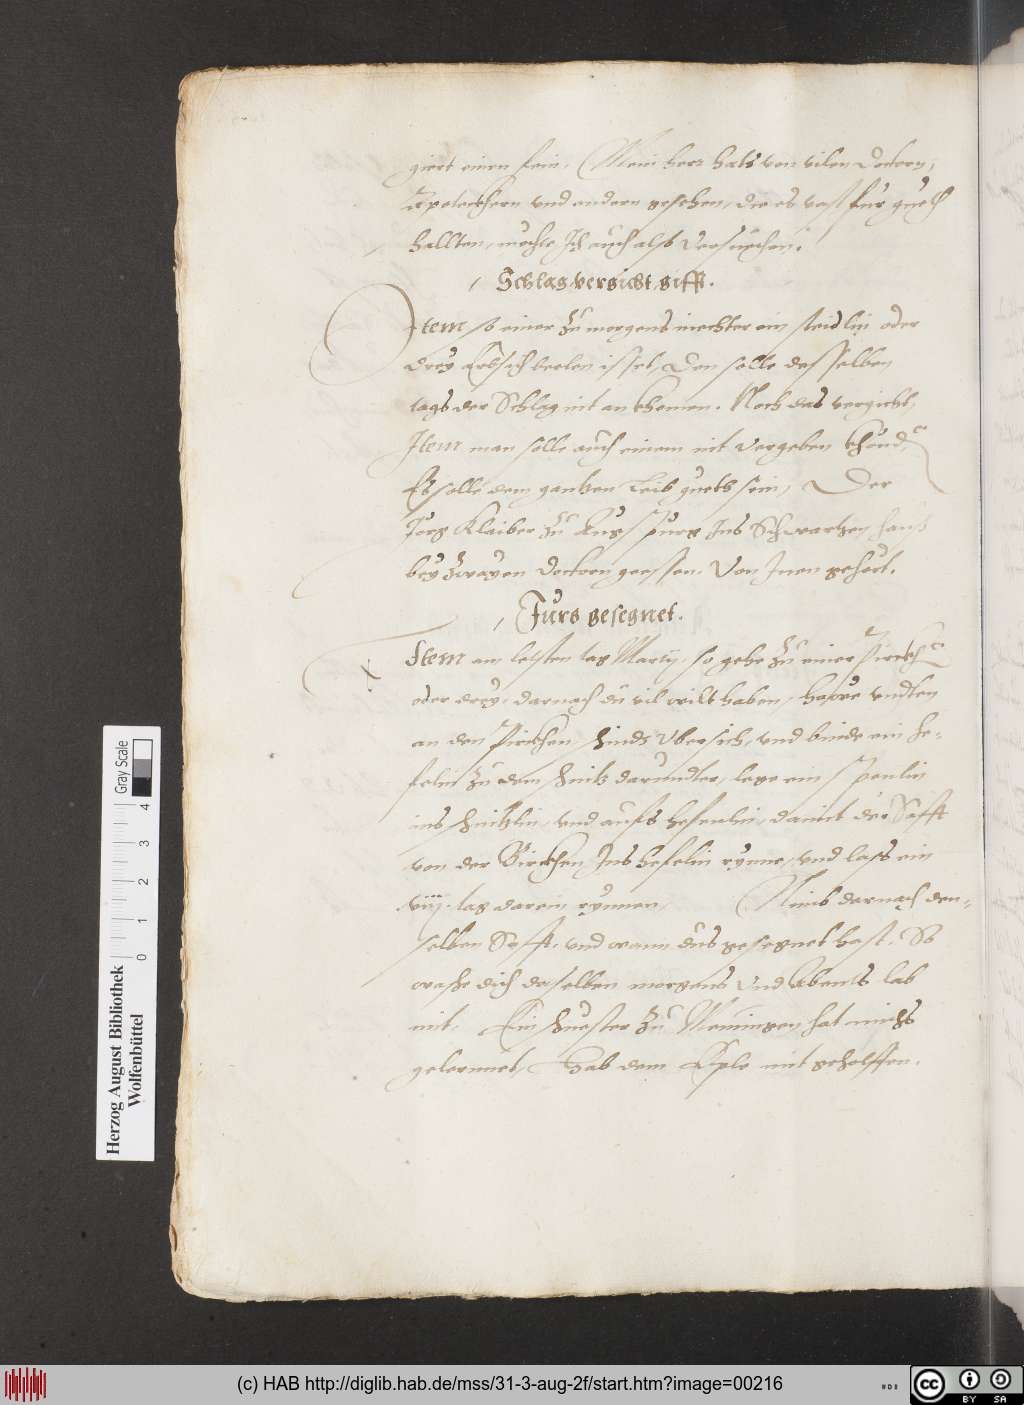 giert einen fein. Mein herr hats von vilen Doctorn,
Apoteckhern vnd andern gesehen, die es vast fur guet
hallten, mechte Ich auch alls versuchen.
Schlag vergicht gifft.
Item so einer zu morgens niechter ein oder
drey isset, Den solle desselben
tags der Schlag nit an khomen. Noch das vergicht,
Item man solle auch einem nit vergeben khönd.
Es solle dem gantzen Leib guets sein, Der
Jorg Klaiber zu Augspurg Ins Schwartzen hauß
bey zwayen Doctorn geessen. Von Inen gehört.
Furs gesegnet.
Item am letsten tag Martij, so gehe zu einer Pirckh
oder drey, darnach du vil wilt haben, hawe vndten
an den Pirckhen vbersich, vnd binde ein he-
felin zu dem darundter, lege ein Spenlin
ins vnd aufs hefenlin, damit der Safft
von der Birckhen Ins hefelin rynne, vnd lass ein
viij. tag darein rynnen, Nimb darnach den-
selben Safft, vnd wann dus gesegnet hast. So
wasche dich daselben morgens vnd Abents lab
mit. Ein zu Memingen hat michs
gelernnet, Hab dem Eple mit geholffen.
Herzog August Bibliothek
Wolfenbüttel
0 1 2 3 4
Gray Scale
(c) HAB http://diglib.hab.de/mss/31-3-aug-2f/start.htm?image=00216
cc BY SA